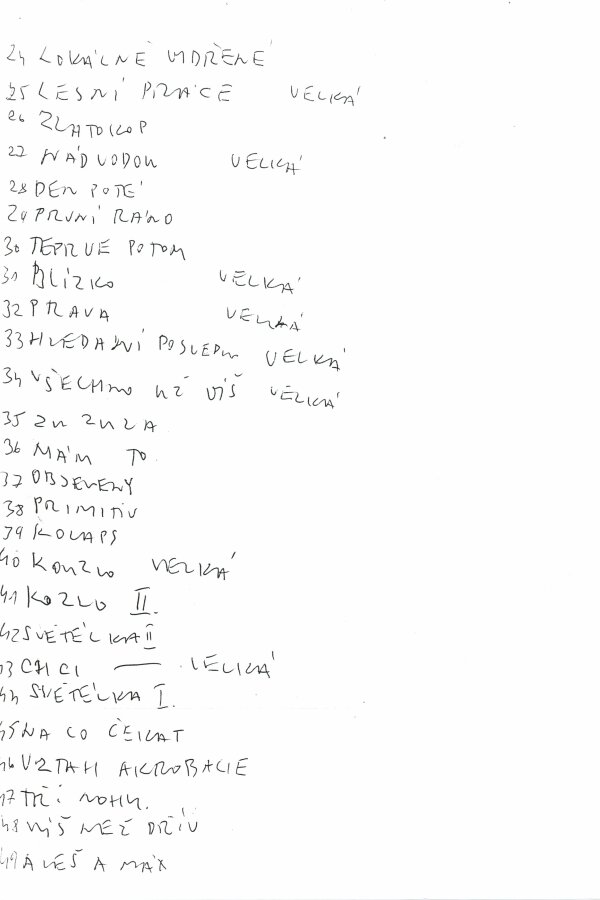 24 LOKÁLNĚ
25 LESNÍ PRÁCE VELKÁ
26 ZLATOKOP
27 NÁD VODOU VELKÁ
28 DEN POTÉ
29 PRVNÍ RÁNO
30 TEPRVE POTOM
31 BLÍZKO VELKÁ
32 PRAVA VELKÁ
33 HLEDÁNÍ VELKÁ
34 VŠECHNO UŽ VÍŠ VELKÁ
35 ZU ZU ZA
36 MÁM TO
37
38 PRIMITIV
39 KOLAPS
40 KOUZLO VELKÁ
41 KOZLO II.
42 SVĚTÉLKA II
43 CHCI — VELKÁ
44 SVĚTÉLKA I.
45 NA CO ČEKAT
46 VZTAH AKROBACIE
47 TŘI NOHY.
48 VÍŠ NEŽ DŘÍV
49 ALEŠ A MAX